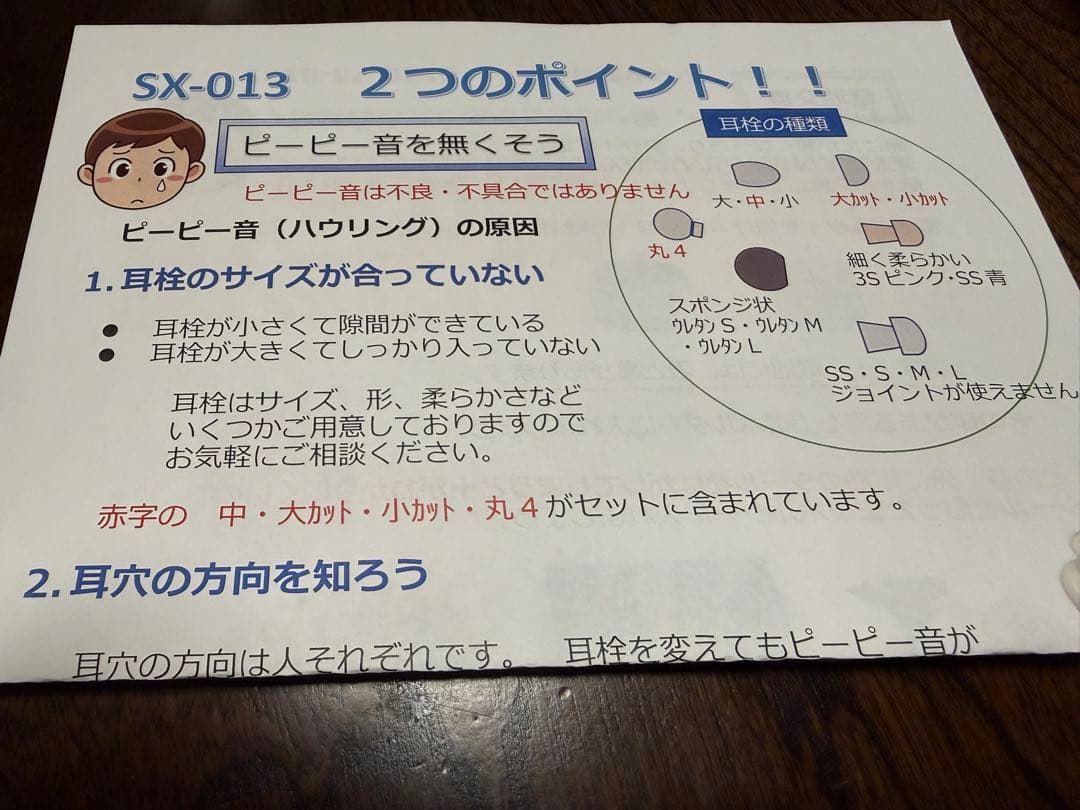 SX-013　２つのポイント！！
ピーピー音を無くそう
ピーピー音は不良・不具合ではありません
ピーピー音（ハウリング）の原因
1.耳栓のサイズが合っていない
● 耳栓が小さくて隙間ができている
● 耳栓が大きくてしっかり入っていない
耳栓はサイズ、形、柔らかさなど
いくつかご用意しておりますので
お気軽にご相談ください。
耳栓の種類
大・中・小
大ｶｯﾄ・小ｶｯﾄ
丸４
細く柔らかい
3Sピンク・SS青
スポンジ状
ｳﾚﾀﾝＳ・ｳﾚﾀﾝＭ
・ｳﾚﾀﾝＬ
SS・S・M・L
ジョイントが使えません
赤字の　中・大ｶｯﾄ・小ｶｯﾄ・丸４がセットに含まれています。
2.耳穴の方向を知ろう
耳穴の方向は人それぞれです。　耳栓を変えてもピーピー音が